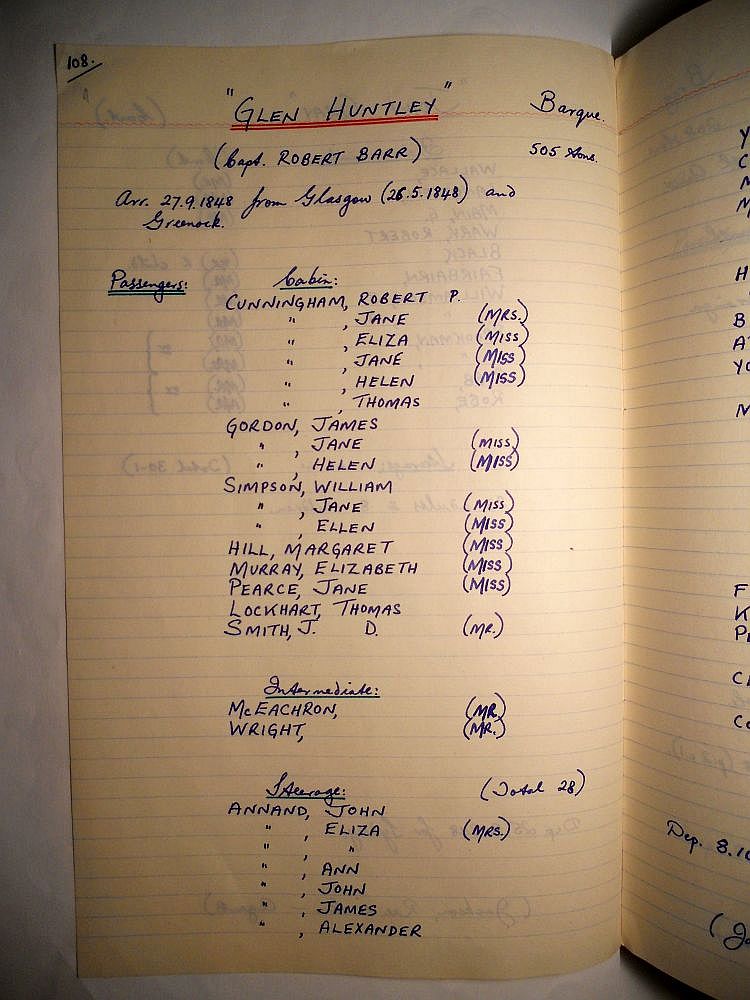 108.
"GLEN HUNTLEY" Barque.
(Capt. ROBERT BARR) 505 tons.
Arr. 27.9.1848 from Glasgow (26.5.1848) and
Greenock.
Passengers: Cabin:
CUNNINGHAM, ROBERT P.
" , JANE (MRS.)
" , ELIZA (MISS)
" , JANE (MISS)
" , HELEN (MISS)
" , THOMAS
GORDON, JAMES
" , JANE (MISS)
" , HELEN (MISS)
SIMPSON, WILLIAM
" , JANE (MISS)
" , ELLEN (MISS)
HILL, MARGARET (MISS)
MURRAY, ELIZABETH (MISS)
PEARCE, JANE (MISS)
LOCKHART, THOMAS
SMITH, J. D. (MR.)
Intermediate:
McEACHRON, (MR.)
WRIGHT, (MR.)
Steerage: (Total 28)
ANNAND, JOHN
" , ELIZA (MRS.)
" , "
" , ANN
" , JOHN
" , JAMES
" , ALEXANDER
Dep. 8.10